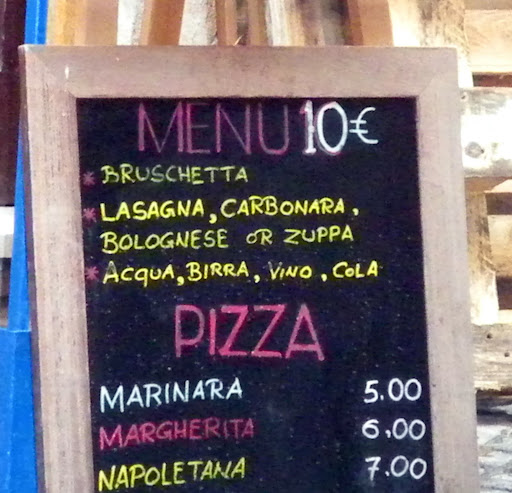 MENU 10€
* BRUSCHETTA
* LASAGNA, CARBONARA,
BOLOGNESE OR ZUPPA
* ACQUA, BIRRA, VINO, COLA
PIZZA
MARINARA 5.00
MARGHERITA 6.00
NAPOLETANA 7.00